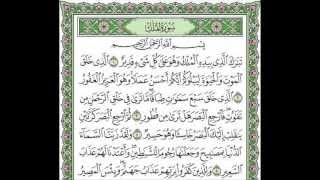 سُورَةُ المُلْكِ
بِسْمِ اللَّهِ الرَّحْمَٰنِ الرَّحِيمِ
تَبَٰرَكَ ٱلَّذِى بِيَدِهِ ٱلْمُلْكُ وَهُوَ عَلَىٰ كُلِّ شَىْءٍ قَدِيرٌ ۝ ٱلَّذِى خَلَقَ
ٱلْمَوْتَ وَٱلْحَيَوٰةَ لِيَبْلُوَكُمْ أَيُّكُمْ أَحْسَنُ عَمَلًا وَهُوَ ٱلْعَزِيزُ ٱلْغَفُورُ
۝ ٱلَّذِى خَلَقَ سَبْعَ سَمَٰوَٰتٍ طِبَاقًا مَّا تَرَىٰ فِى خَلْقِ ٱلرَّحْمَٰنِ مِن
تَفَٰوُتٍ فَٱرْجِعِ ٱلْبَصَرَ هَلْ تَرَىٰ مِن فُطُورٍ ۝ ثُمَّ ٱرْجِعِ ٱلْبَصَرَ كَرَّتَيْنِ
يَنقَلِبْ إِلَيْكَ ٱلْبَصَرُ خَاسِئًا وَهُوَ حَسِيرٌ ۝ وَلَقَدْ زَيَّنَّا ٱلسَّمَآءَ
ٱلدُّنْيَا بِمَصَٰبِيحَ وَجَعَلْنَٰهَا رُجُومًا لِّلشَّيَٰطِينِ وَأَعْتَدْنَا لَهُمْ عَذَابَ
ٱلسَّعِيرِ ۝ وَلِلَّذِينَ كَفَرُوا۟ بِرَبِّهِمْ عَذَابُ جَهَنَّمَ وَبِئْسَ ٱلْمَصِيرُ